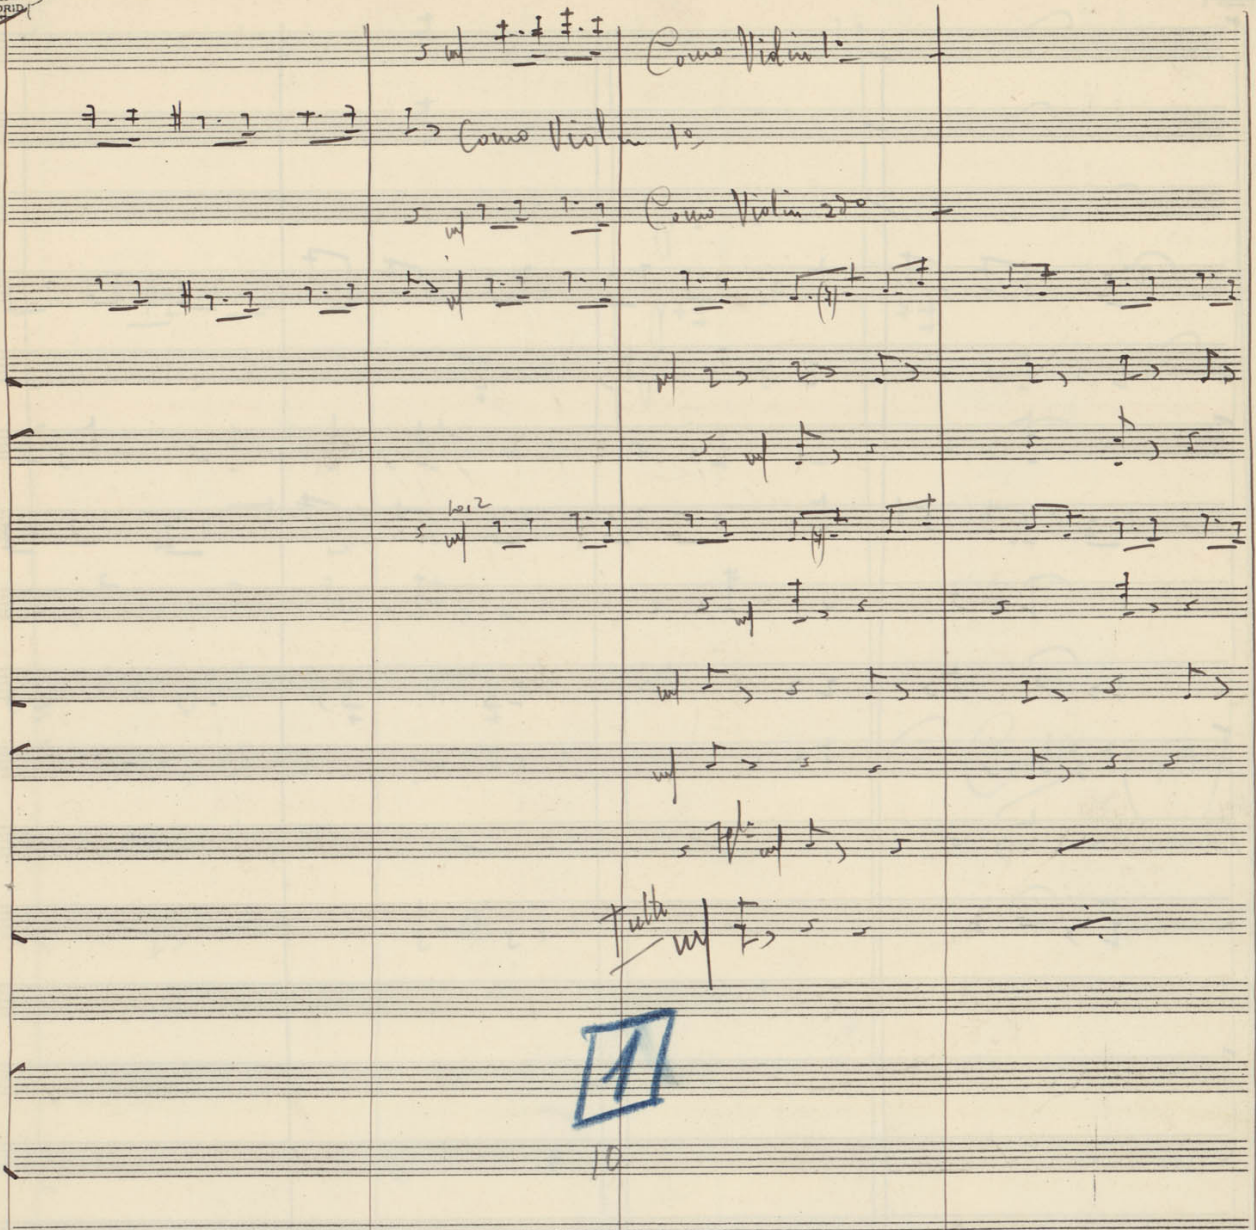 mf Como Violin 1º
Como Violin 1º
mf Como Violin 2do
mf
mf
mf
los 2
mf
mf
mf
mf
mf
Tutti mf
1
10